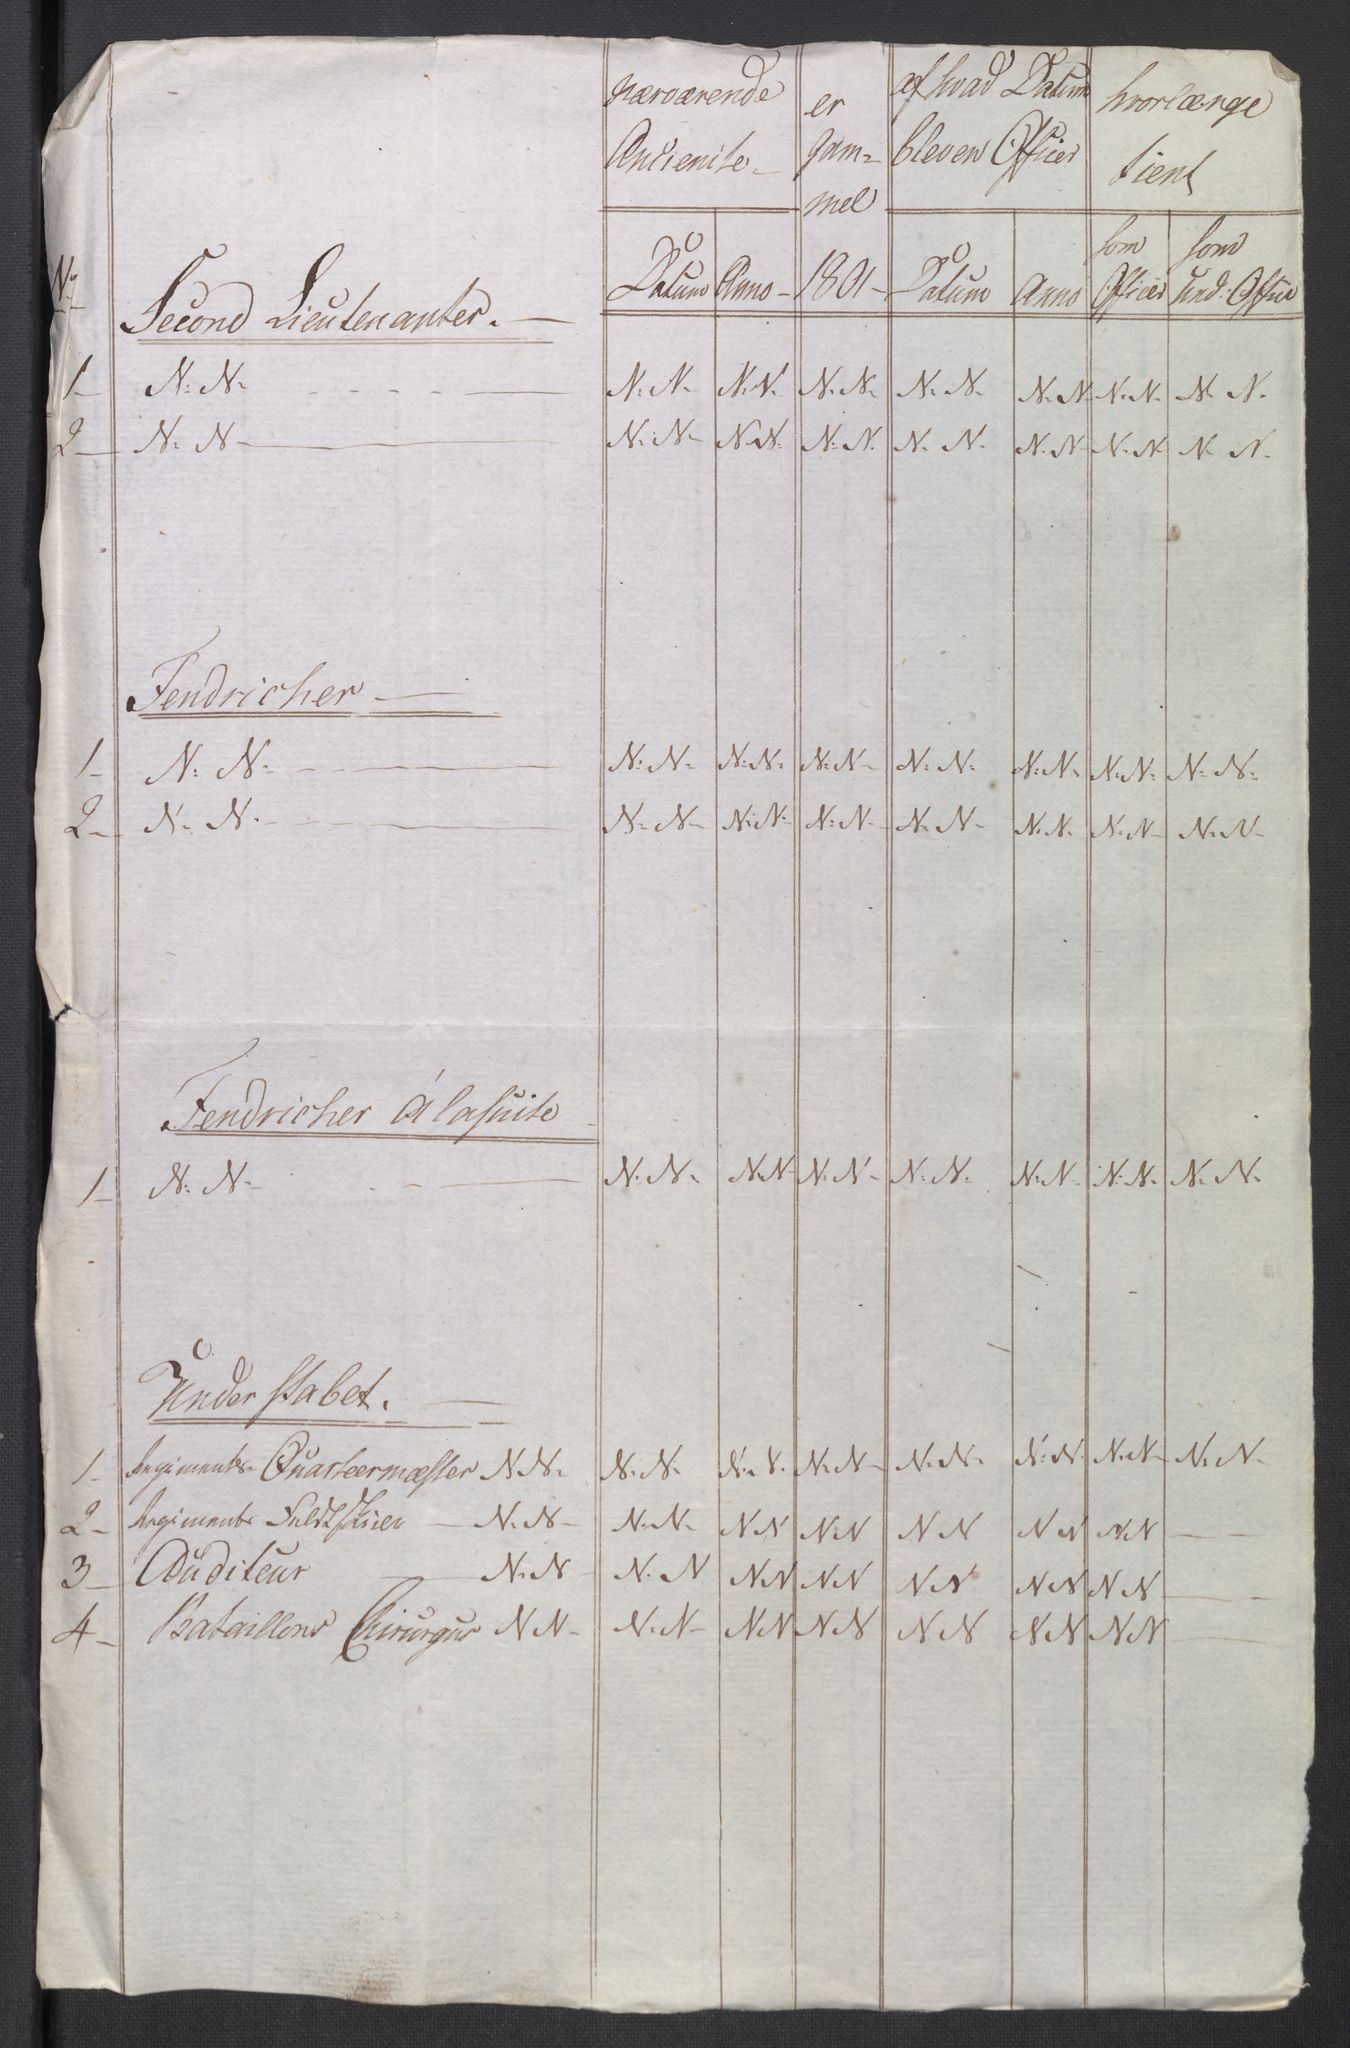 nærværende er af hvad Datum hvorlænge
Ancienite gam= bleven Officer tient
mel
som som
No Datum Anno 1801 Datum Anno Officer und. Officer
Second Lieutenanter.
1 N. N. N. N. N. N. N. N. N. N. N. N. N. N. N. N.
2 N. N. N. N. N. N. N. N. N. N. N. N. N. N. N. N.
Fendricher
1 N. N. N. N. N. N. N. N. N. N. N. N. N. N. N. N.
2 N. N. N. N. N. N. N. N. N. N. N. N. N. N. N. N.
Fendricher á lasuite
1 N. N. N. N. N. N. N. N. N. N. N. N. N. N. N. N.
Under stabet.
1 Regiments Quarteermester N. N. N. N. N. N. N. N. N. N. N. N. N. N. N. N.
2 Regiments N. N. N. N. N N N N N N N N N N
3 Auditeur N. N N. N N N N N N N N N N N
4 Bataillons Chirurgus N N N. N N N N N N N N N N N